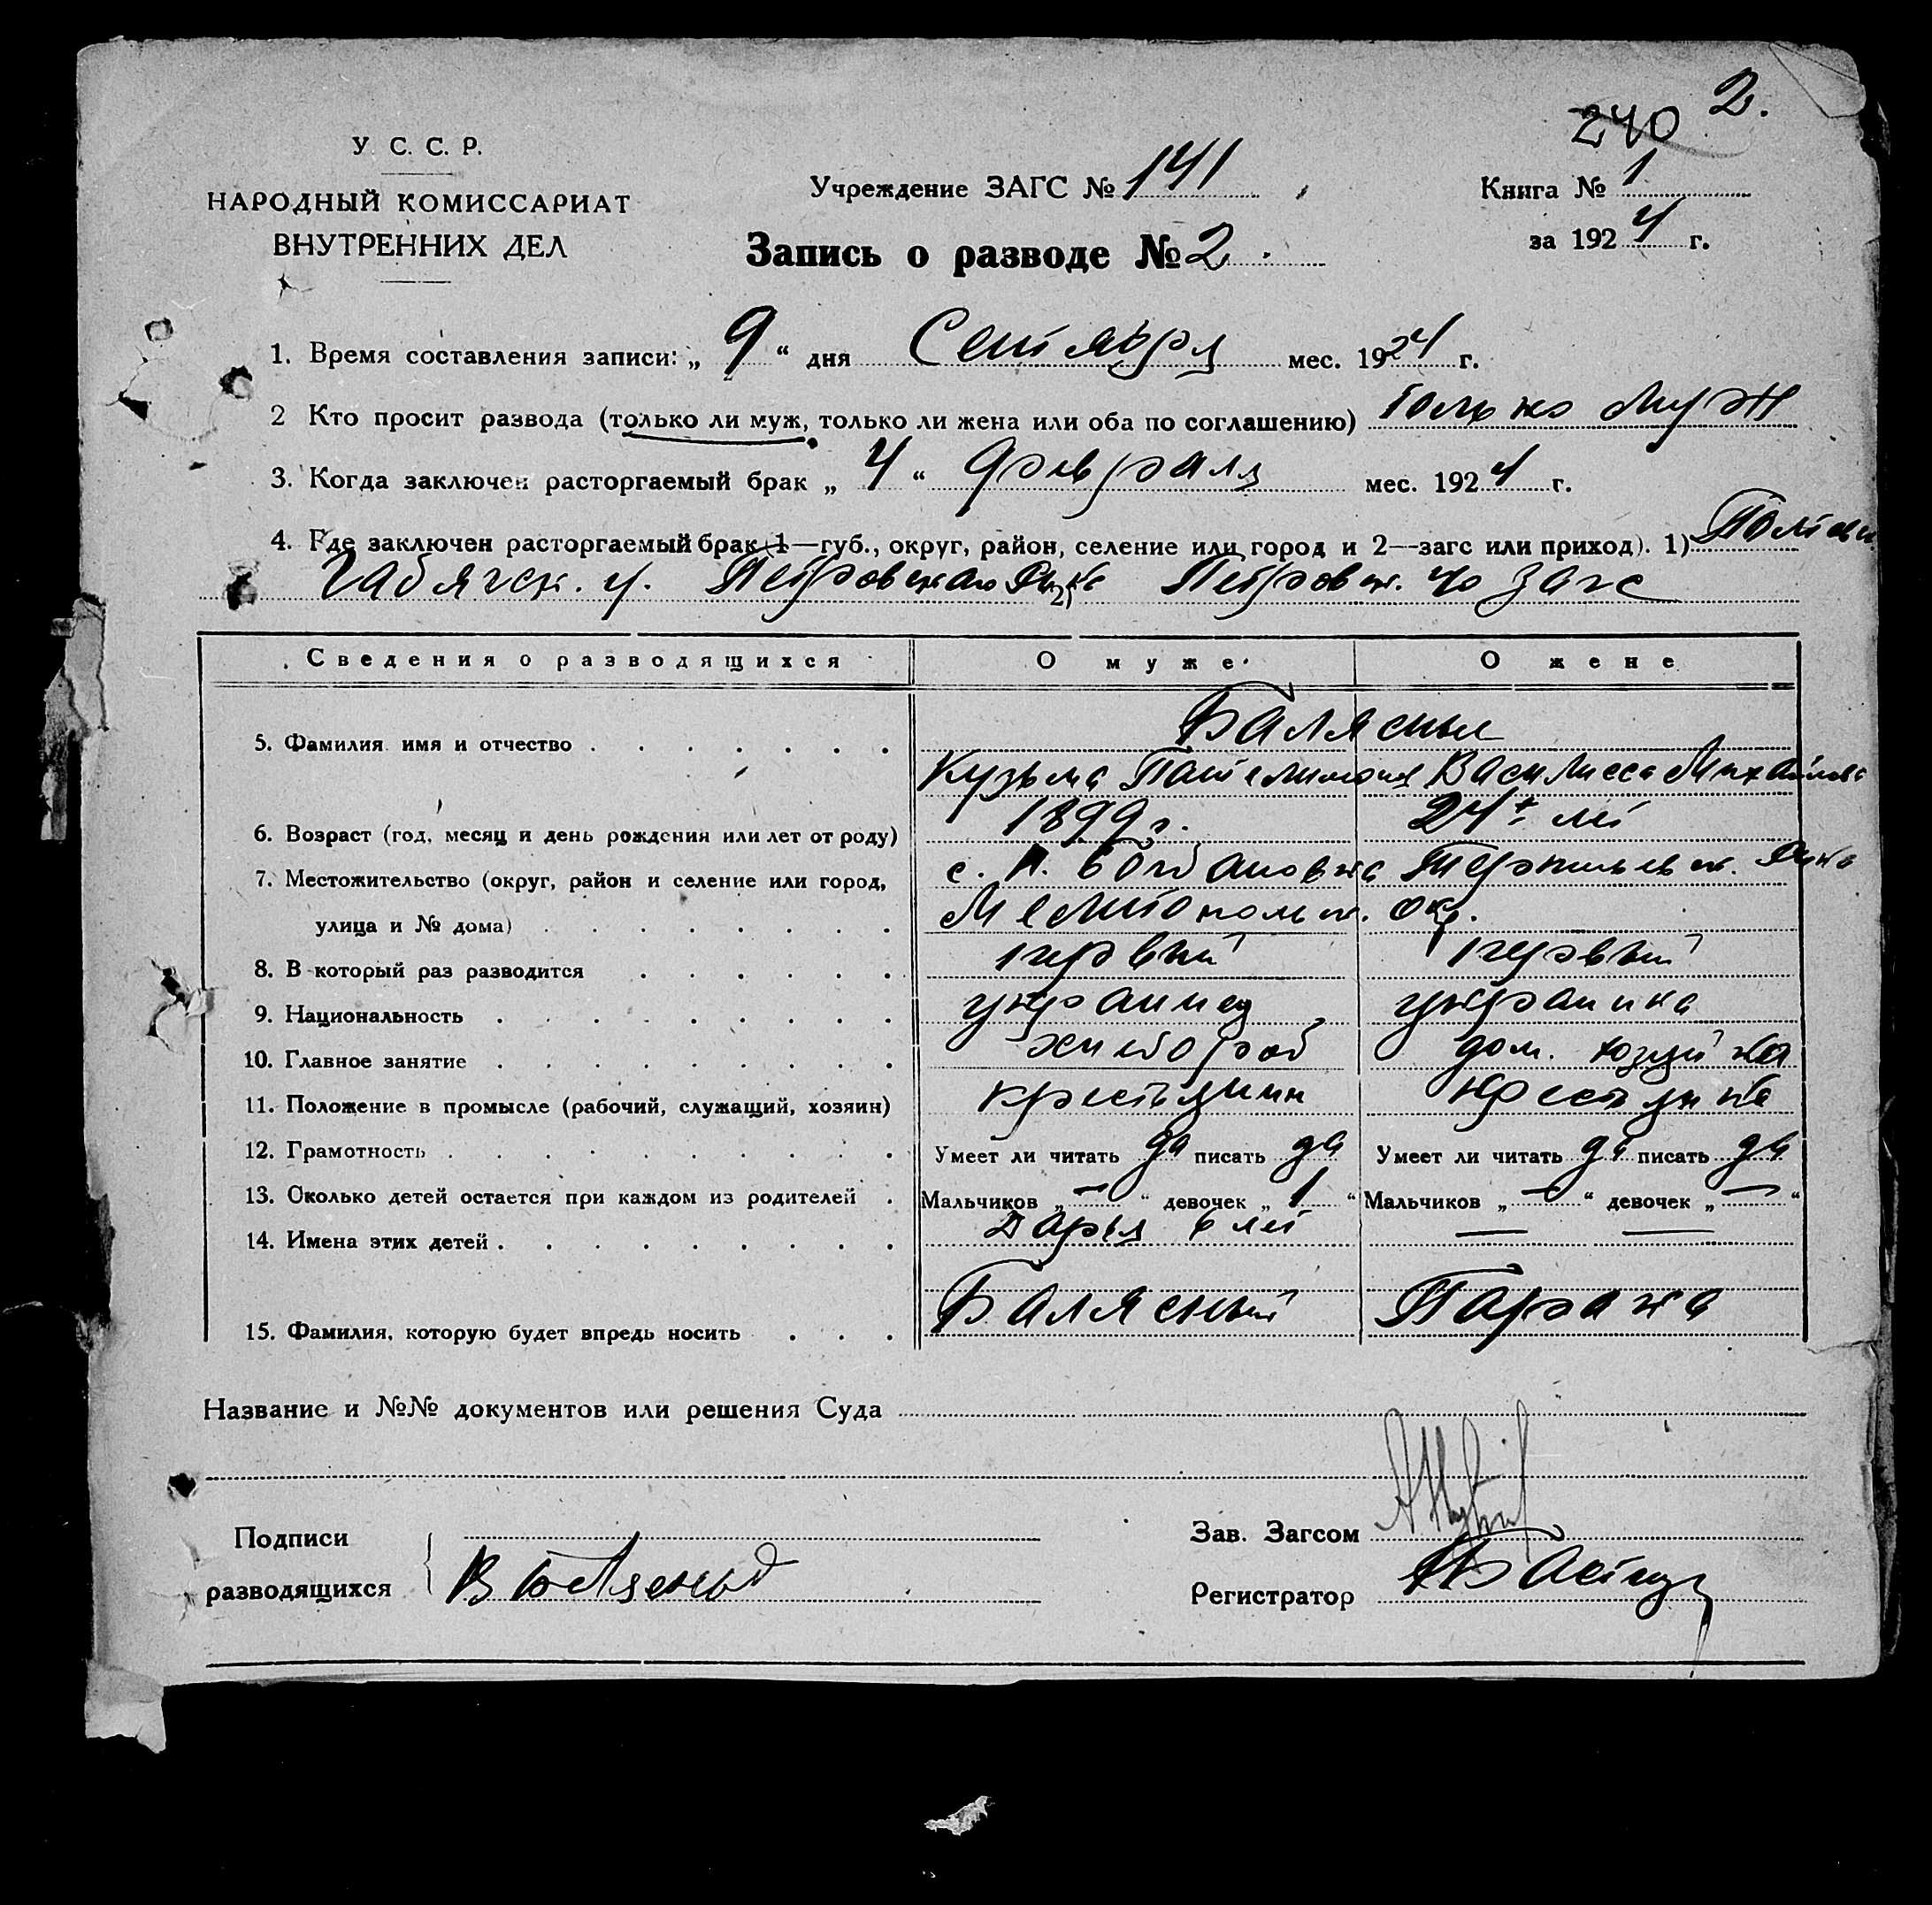 240 2.
У. С. С. Р.
НАРОДНЫЙ КОМИССАРИАТ
ВНУТРЕННИХ ДЕЛ
Учреждение ЗАГС № 141
Книга № 1
за 1924 г.
Запись о разводе № 2.
1. Время составления записи: „ 9 “ дня Сентября мес. 1924 г.
2 Кто просит развода (только ли муж, только ли жена или оба по соглашению) только муж
3. Когда заключен расторгаемый брак „ 4 “ февраля мес. 1924 г.
4. Где заключен расторгаемый брак (1—губ., округ, район, селение или город и 2—загс или приход). 1)
Петровского 2) Петровск. загс
Сведения о разводящихся О муже О жене
5. Фамилия имя и отчество Балясные
Кузьма Василисса
6. Возраст (год, месяц и день рождения или лет от роду) 1899 г. 24 л.
7. Местожительство (округ, район и селение или город, с. Богдановка
улица и № дома) Мелитопольск. окр.
8. В который раз разводится первый первый
9. Национальность украинец украинка
10. Главное занятие хлебороб дом. хозяйка
11. Положение в промысле (рабочий, служащий, хозяин) крестьянин крестьянка
12. Грамотность Умеет ли читать да писать да Умеет ли читать да писать да
13. Сколько детей остается при каждом из родителей Мальчиков „—“ девочек „1“ Мальчиков „—“ девочек „—“
14. Имена этих детей Дарья 6 лет — —
15. Фамилия, которую будет впредь носить Балясный
Название и №№ документов или решения Суда
Подписи
разводящихся
Зав. Загсом
Регистратор